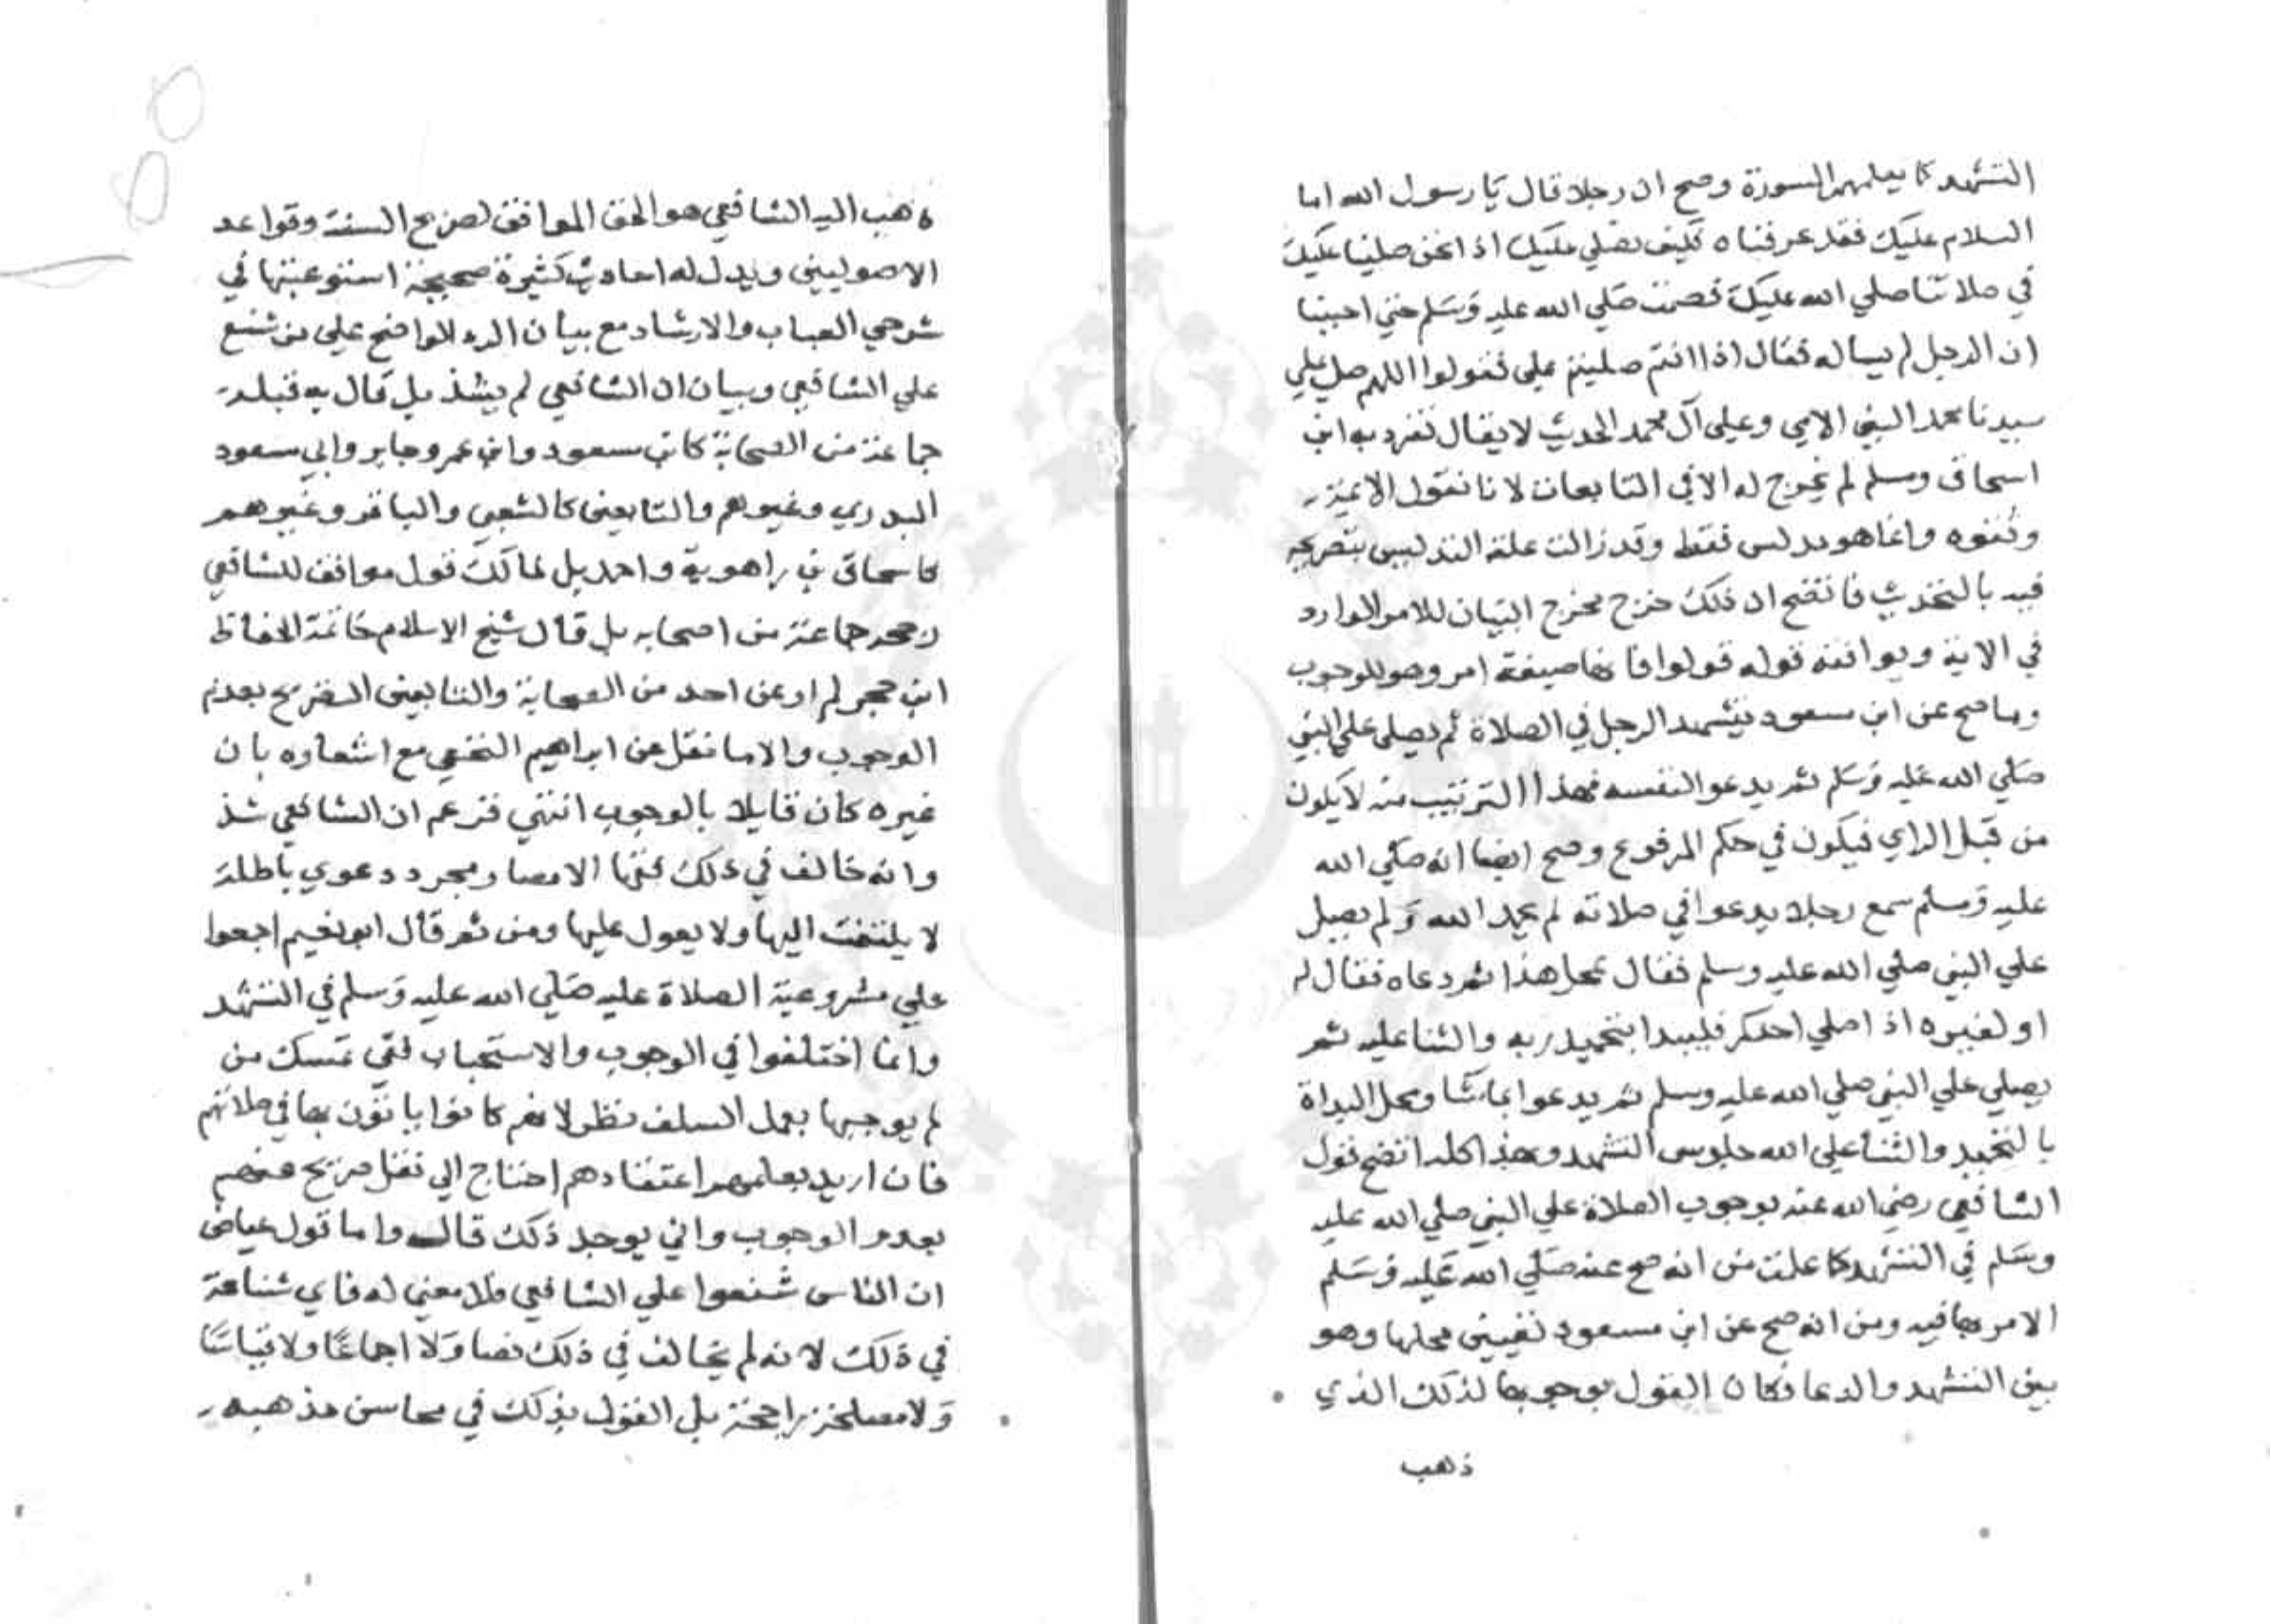 التشهد كما يعلمهم السورة وصح ان رجلا قال يا رسول الله اما
السلام عليك فقد عرفناه فكيف نصلي عليك اذا نحن صلينا عليك
في صلاتنا صلي الله عليك فصمت صلي الله عليه وسلم حتي احببنا
ان الرجل لم يساله فقال اذا انتم صليتم علي فقولوا اللهم صل علي
سيدنا محمد النبي الامي وعلي آل محمد الحديث لا يقال تفرد به ابن
اسحاق ومسلم لم يخرج له الا في المتابعات لانا نقول الايمة
وثقوه وانما هو مدلس فقط وقد زالت علة التدليس بتصريحه
فيه بالتحديث فاتضح ان ذلك خرج مخرج البيان للامر الوارد
في الاية ويوافقه قوله قولوا فانها صيغة امر وهو للوجوب
وما صح عن ابن مسعود يتشهد الرجل في الصلاة ثم يصلي علي النبي
صلي الله عليه وسلم ثم يدعو لنفسه فهذا الترتيب منه لا يكون
من قبل الراي فيكون في حكم المرفوع وصح ايضا انه صلي الله
عليه وسلم سمع رجلا يدعوا في صلاته لم يحمد الله ولم يصل
علي النبي صلي الله عليه وسلم فقال عجل هذا ثم دعاه فقال له
او لغيره اذا صلي احدكم فليبدا بتحميد ربه والثنا عليه ثم
يصلي علي النبي صلي الله عليه وسلم ثم يدعوا بما شا ومحل البداة
بالتحميد والثنا علي الله جلوس التشهد وبهذا كله اتضح قول
الشافعي رضي الله عنه بوجوب الصلاة علي النبي صلي الله عليه
وسلم في التشهد كما علمت من انه صح عنه صلي الله عليه وسلم
الامر بها فيه ومن انه صح عن ابن مسعود تعيين محلها وهو
بين التشهد والدعا فكان القول بوجوبها لذلك الذي
ذهب
ذهب اليه الشافعي هو الحق الموافق لصريح السنة وقواعد
الاصوليين ويدل له احاديث كثيرة صحيحة استوعبتها في
شرحي العباب والارشاد مع بيان الرد الواضح علي من شنع
علي الشافعي وبيان ان الشافعي لم يشذ بل قال به قبله
جماعة من الصحابة كابن مسعود وابن عمر وجابر وابي مسعود
البدري وغيرهم والتابعين كالشعبي والباقر وغيرهم
كاسحاق بن راهوية واحمد بل لمالك قول موافق للشافعي
رجحه جماعة من اصحابه بل قال شيخ الاسلام خاتمة الحفاظ
ابن حجر لم ار عن احد من الصحابة والتابعين التصريح بعدم
الوجوب والا ما نقل عن ابراهيم النخعي مع اشعاره بان
غيره كان قايلا بالوجوب انتهي فزعم ان الشافعي شذ
وانه خالف في ذلك فقها الامصار مجرد دعوي باطلة
لا يلتفت اليها ولا يعول عليها ومن ثم قال ابو نعيم اجمعوا
علي مشروعية الصلاة عليه صلي الله عليه وسلم في التشهد
وانما اختلفوا في الوجوب والاستحباب ففي تمسك من
لم يوجبها بعمل السلف نظر لانهم كانوا ياتون بها في صلاتهم
فان اريد بعملهم اعتقادهم احتاج الي نقل صريح عنهم
بعدم الوجوب واني يوجد ذلك قال واما قول عياض
ان الناس شنعوا علي الشافعي فلا معني له فاي شناعة
في ذلك لانه لم يخالف في ذلك نصا ولا اجماعا ولا قياسا
ولا مصلحة راجحة بل القول بذلك في محاسن مذهبه